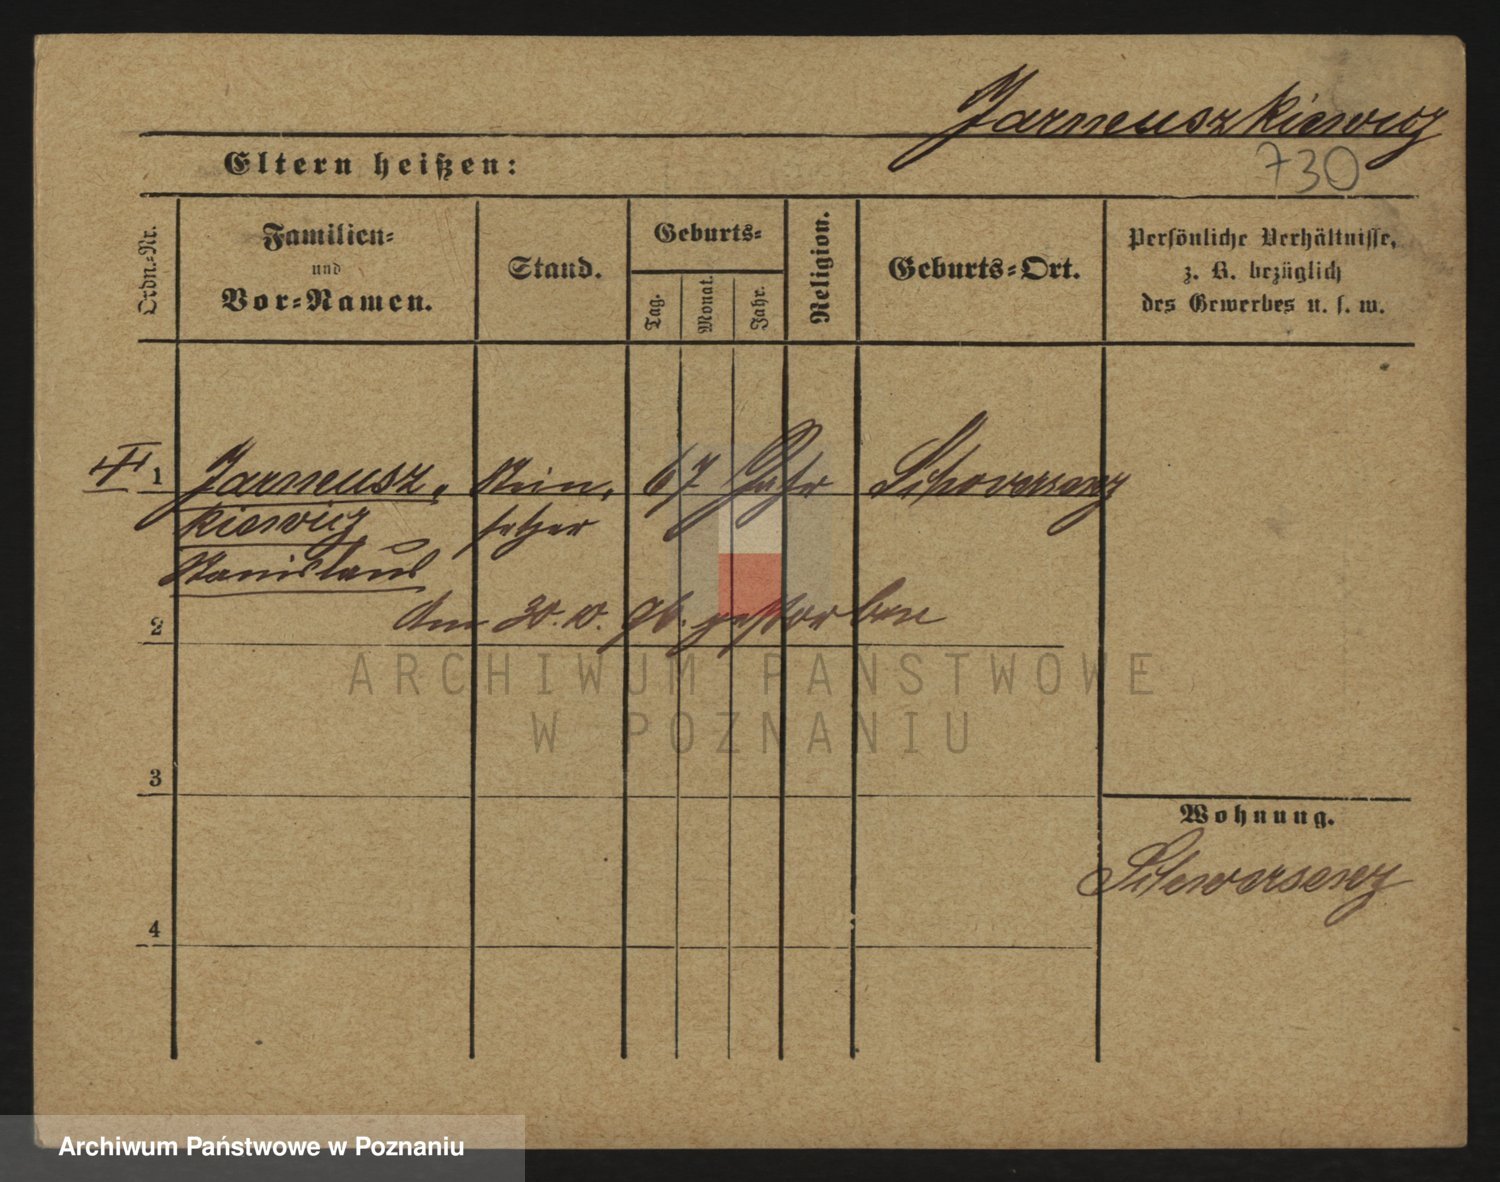 Jarneuszkiewicz
730
Eltern heißen:
Ordn.-Nr.
Familien-
und
Vor-Namen.
Stand.
Geburts-
Tag.
Monat.
Jahr.
Religion.
Geburts-Ort.
Persönliche Verhältnisse,
z. B. bezüglich
des Gewerbes u. s. w.
1 Jarneusz- Stein- 67 Jahr
kiewicz setzer
Stanislaus
Am 30. 10. 96. gestorben
2
ARCHIWUM PAŃSTWOWE
W POZNANIU
3
Wohnung.
4
Archiwum Państwowe w Poznaniu